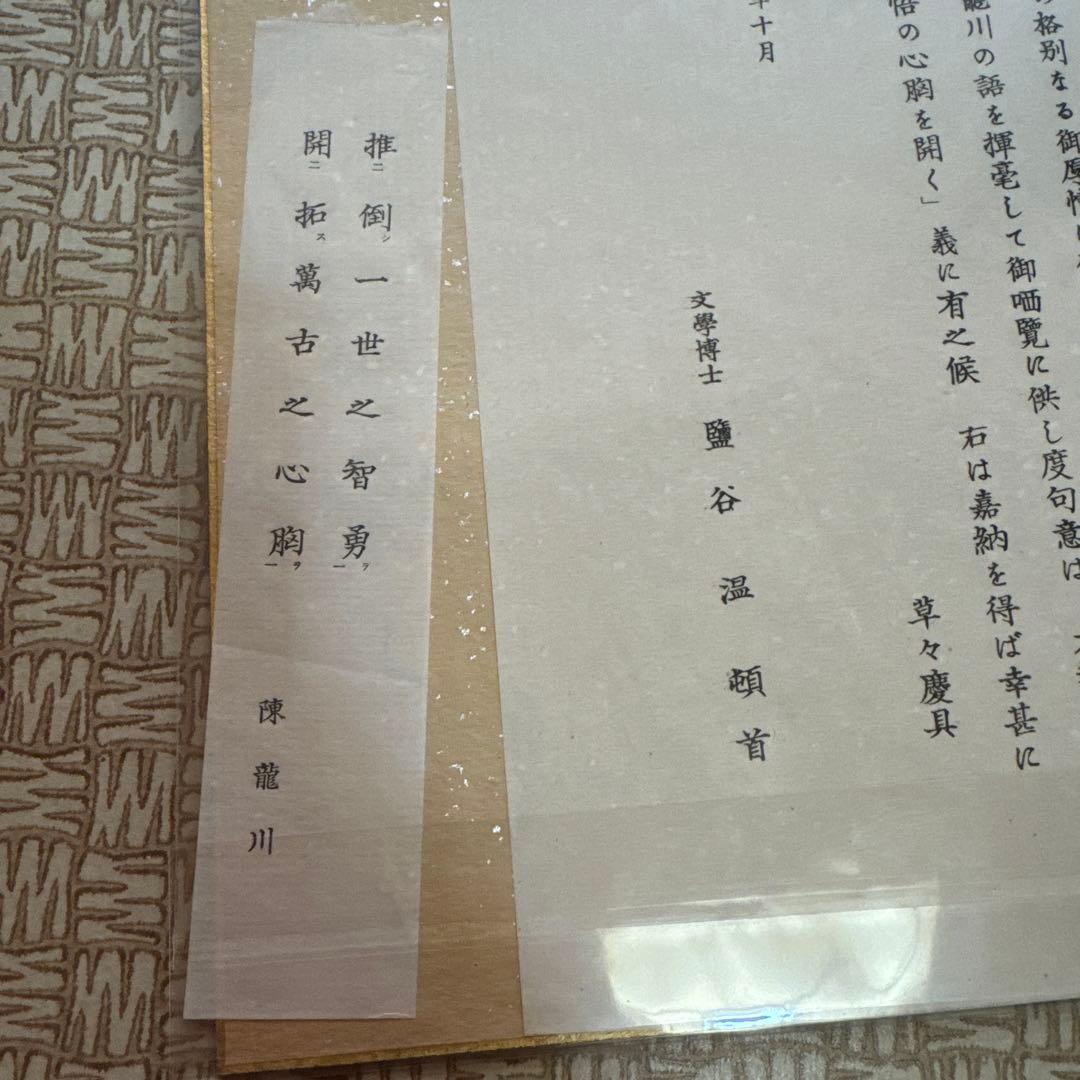 格別なる御厚情に
川の語を揮毫して御哂覽に供し度句意は
悟の心胸を開く」義に有之候　右は嘉納を得ば幸甚に
草々慶具
十月
文學博士　鹽谷温　頓首
推㆓倒シ一世之智勇ヲ㆒
開㆓拓ス萬古之心胸ヲ㆒
陳龍川